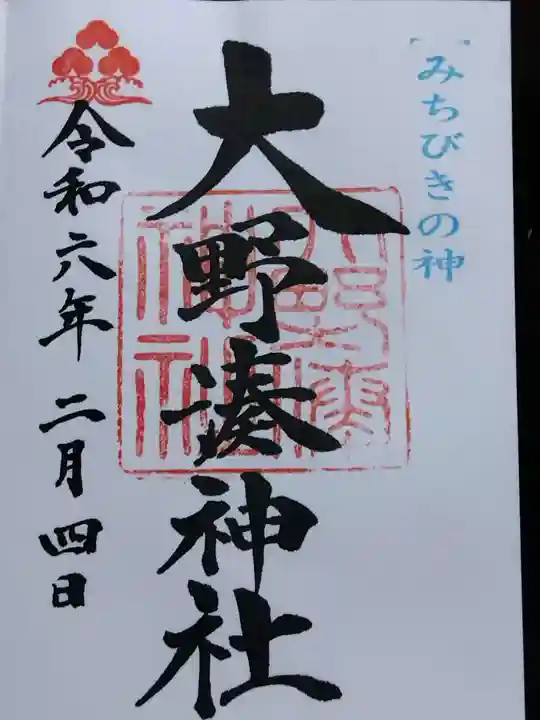 みちびきの神
大野湊神社
令和六年 二月 四日